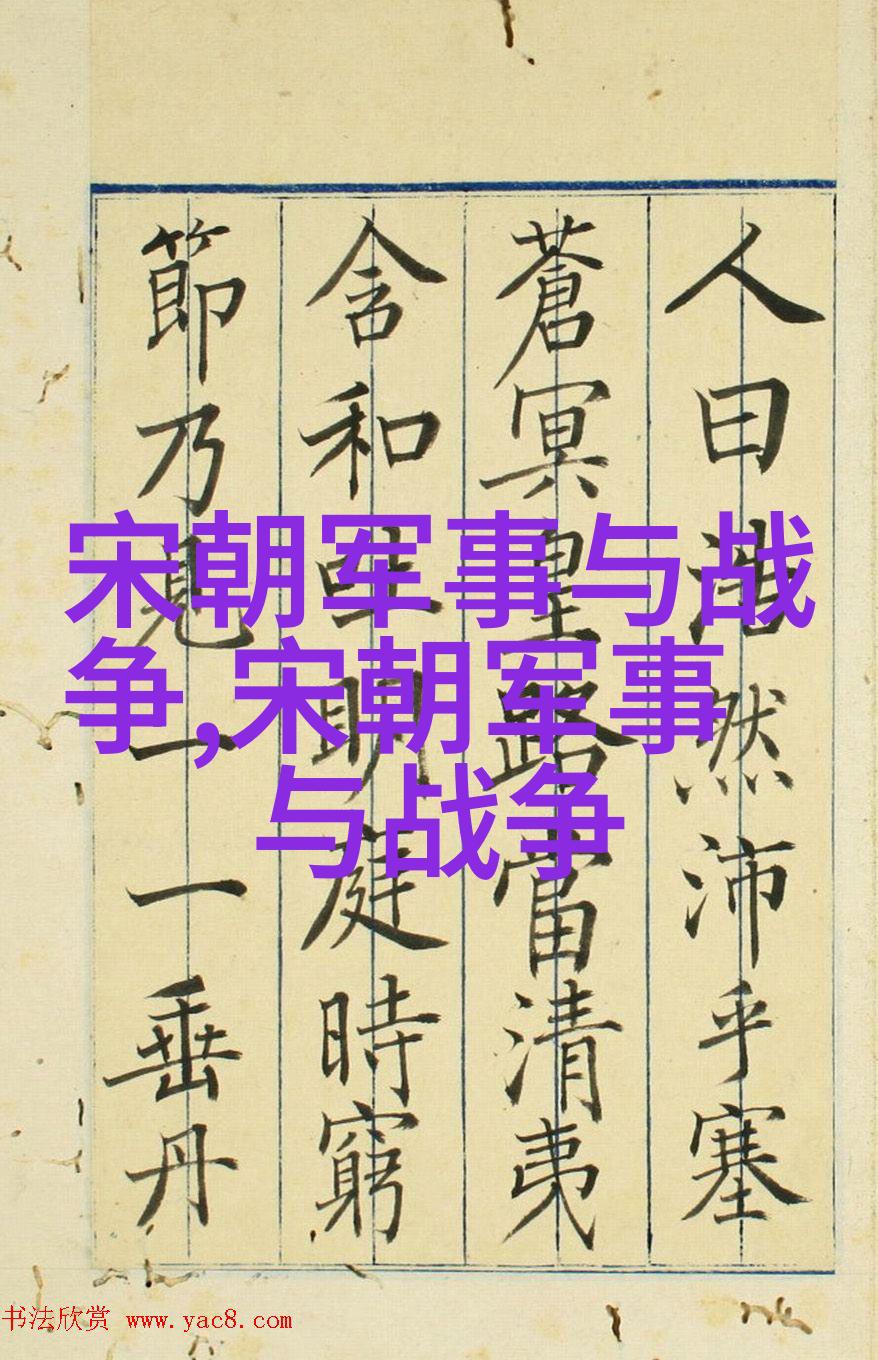 人曰浩然沛乎塞
蒼冥皇路當清夷
含和吐明庭時窮
節乃見一一垂丹
宋朝军事与战
争,宋朝军事
与战争
书法欣赏 www.yac8.com